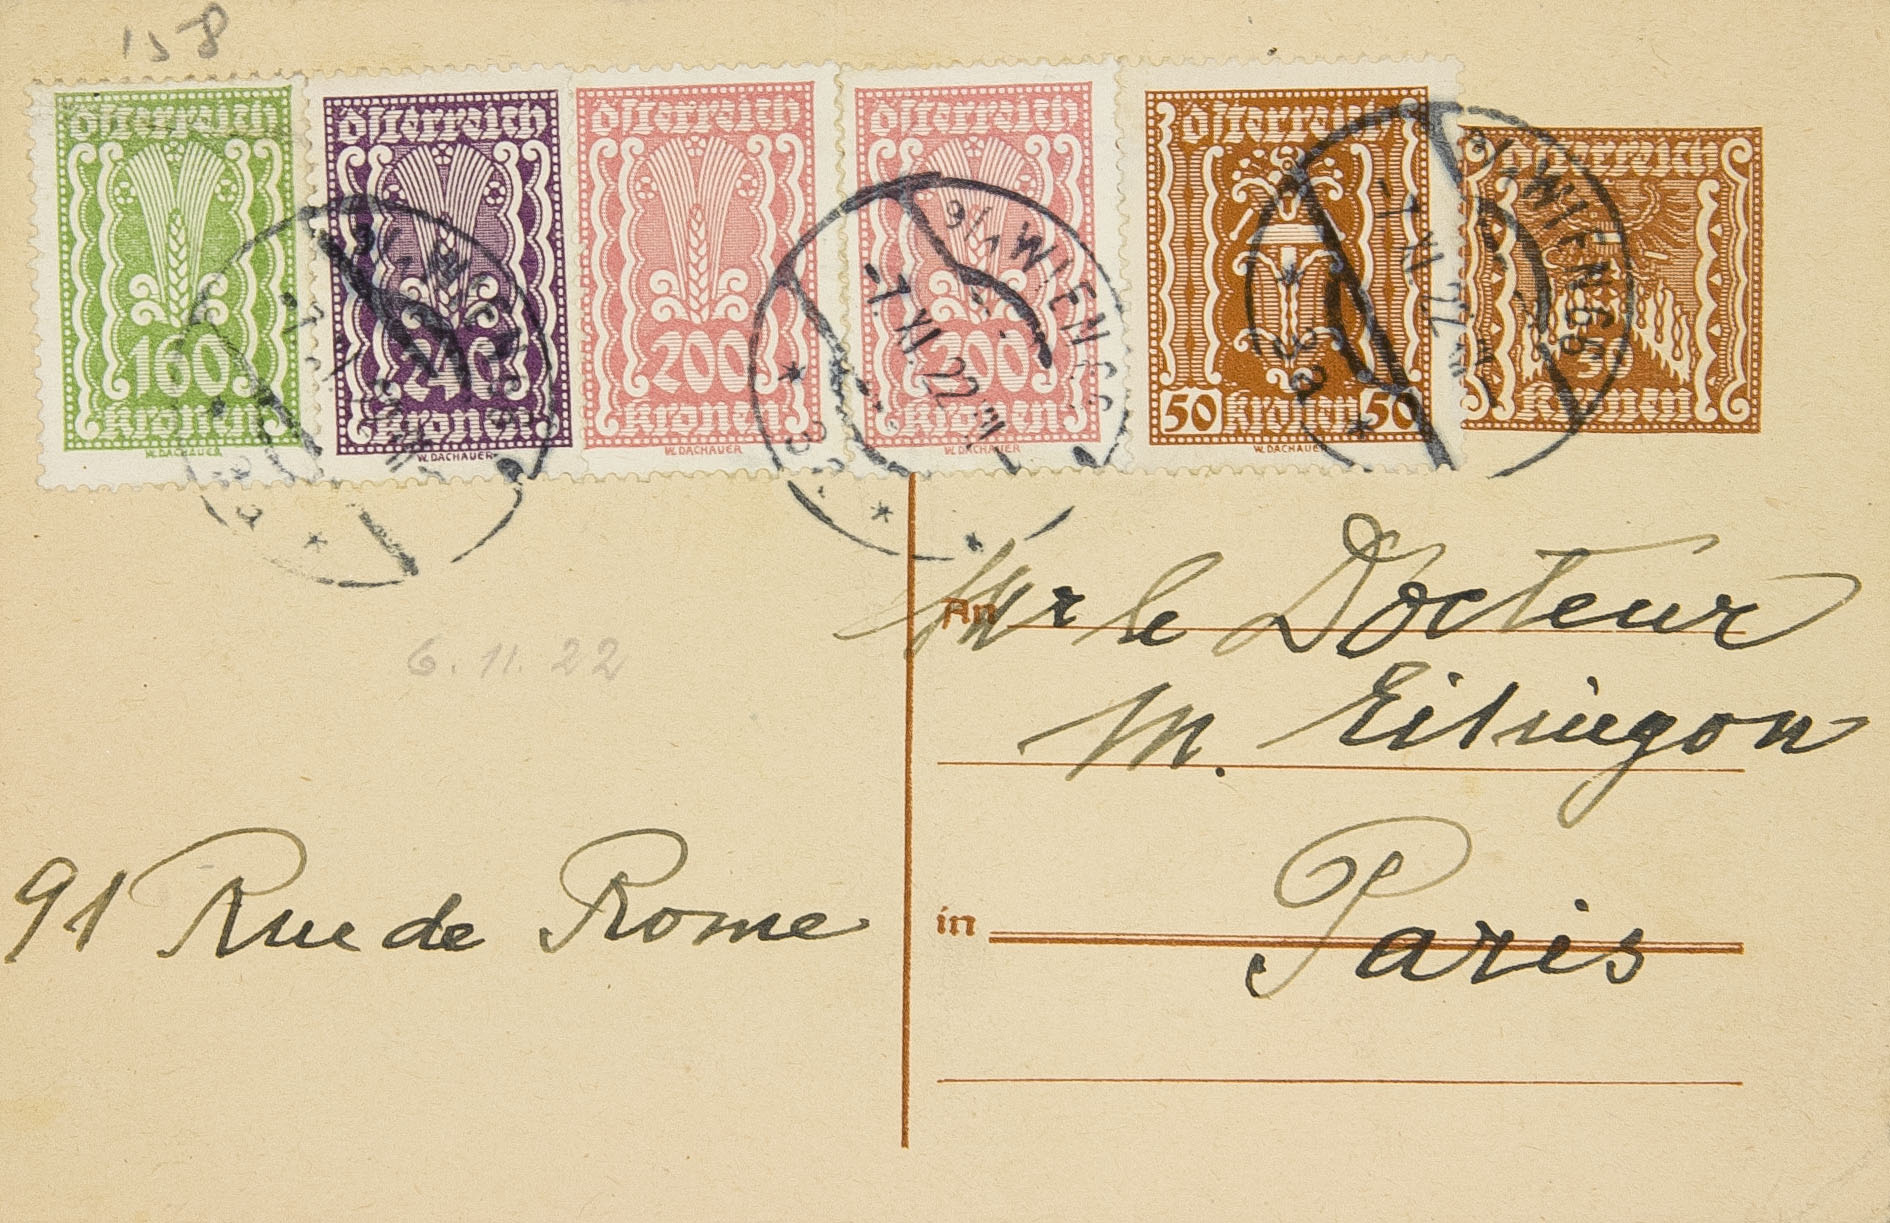 158
österreich
160
kronen
W.DACHAUER
österreich
240
kronen
W.DACHAUER
österreich
200
kronen
W.DACHAUER
österreich
200
kronen
W.DACHAUER
österreich
50 kronen 50
W.DACHAUER
österreich
kronen
9/1 WIEN 66
-7.XI.22
9/1 WIEN 66
-7.XI.22
An Mr le Docteur
M. Eitingon
6.11.22
91 Rue de Rome
in Paris